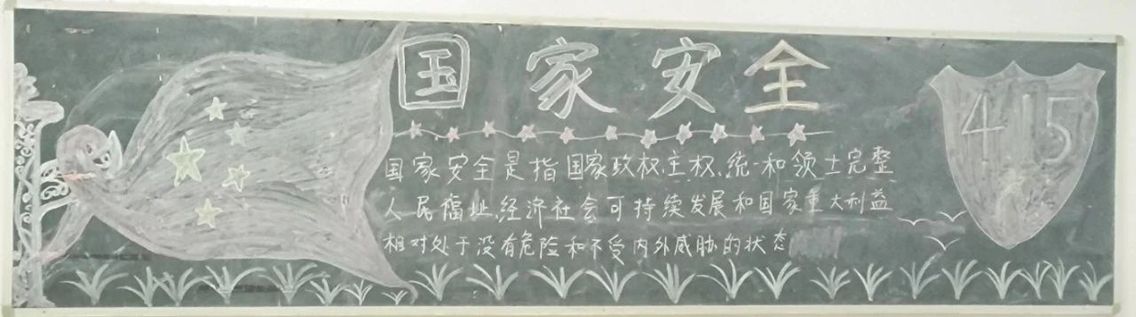 国家安全
国家安全是指国家政权、主权、统一和领土完整
人民福祉、经济社会可持续发展和国家重大利益
相对处于没有危险和不受内外威胁的状态
415